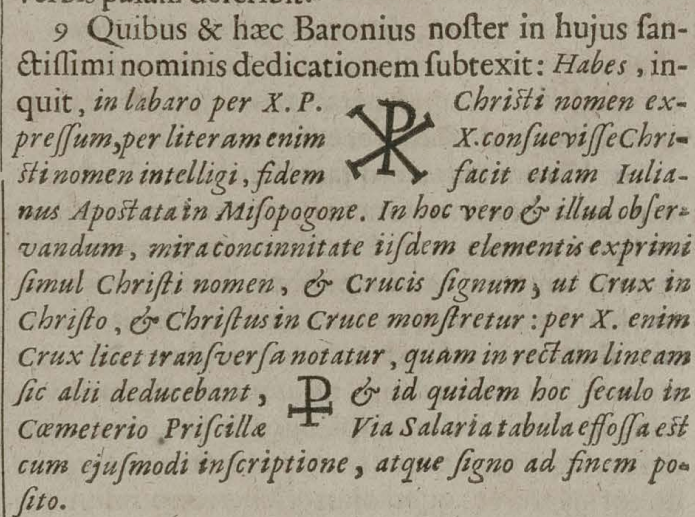 9 Quibus & hæc Baronius noſter in hujus ſan-
ctiſſimi nominis dedicationem ſubtexit: Habes, in-
quit, in labaro per X. P. ☧ Chriſti nomen ex-
preſſum, per literam enim X. conſueviſſe Chri-
ſti nomen intelligi, fidem facit etiam Iulia-
nus Apoſtata in Miſopogone. In hoc vero & illud obſer-
vandum, mira concinnitate iiſdem elementis exprimi
ſimul Chriſti nomen, & Crucis ſignum, ut Crux in
Chriſto, & Chriſtus in Cruce monſtretur: per X. enim
Crux licet tranſverſa notatur, quam in rectam lineam
ſic alii deducebant, ⳨ & id quidem hoc ſeculo in
Cœmeterio Priſcillæ Via Salaria tabula effoſſa eſt
cum ejuſmodi inſcriptione, atque ſigno ad finem po-
ſito.